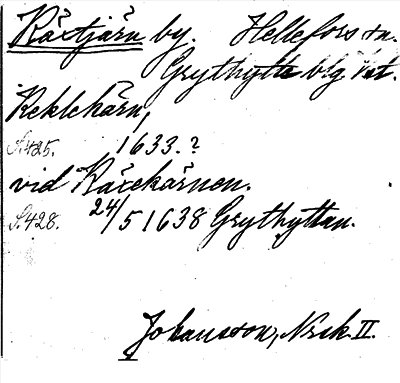 Räxtjärn by. Hellefors sn.
Grythytte blg Vst.
Keklekärn,
S.425. 1633.?
vid Räxekärnen.
S.428. 24/5 1638 Grythyttan.
Johansson, Nrsk. II.